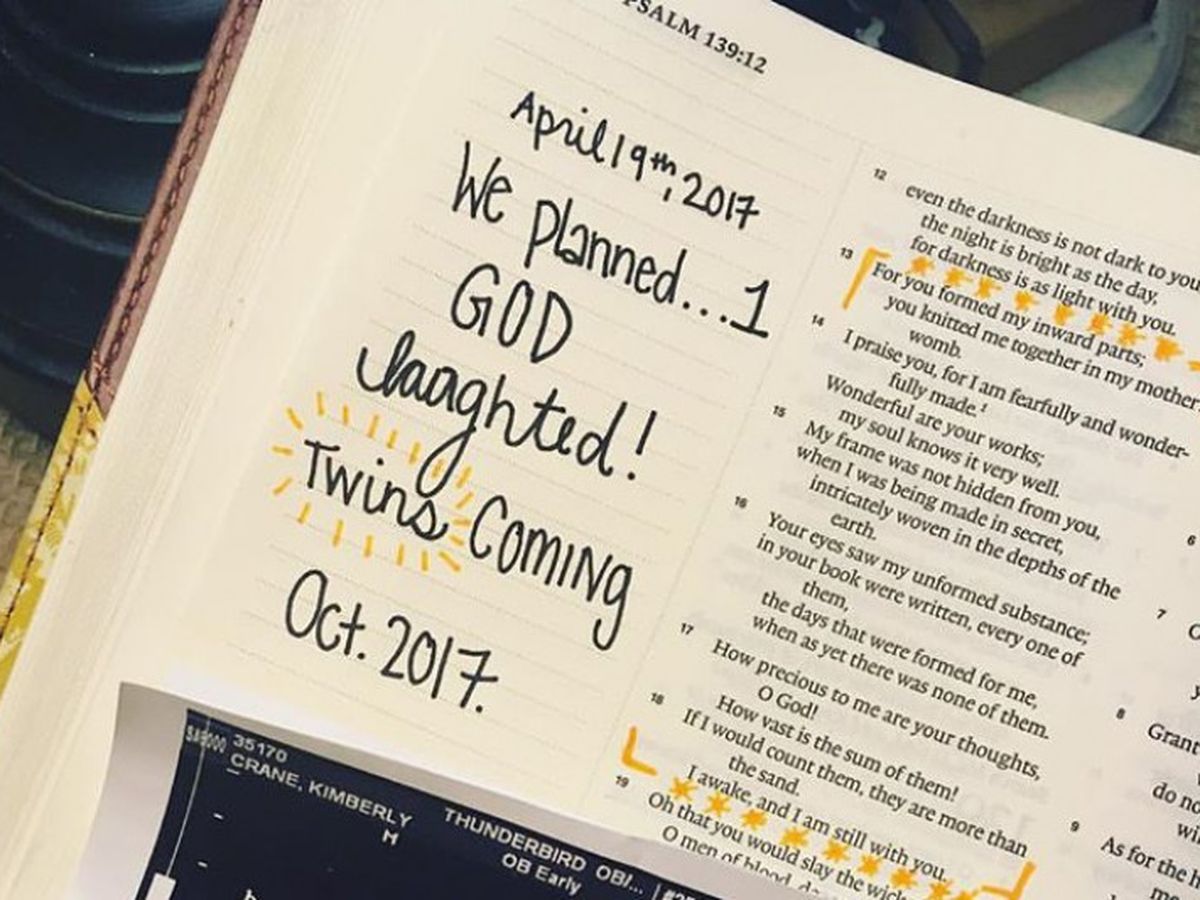 PSALM 139:12
April 19th, 2017
We planned...1
GOD
laaghted!
Twins Coming
Oct. 2017.
12 even the darkness is not dark to you
the night is bright as the day,
for darkness is as light with you.
13 For you formed my inward parts;
you knitted me together in my mother
womb.
14 I praise you, for I am fearfully and wonder-
fully made.1
Wonderful are your works;
my soul knows it very well.
15 My frame was not hidden from you,
when I was being made in secret,
intricately woven in the depths of the
earth.
16 Your eyes saw my unformed substance;
in your book were written, every one of
them,
the days that were formed for me,
when as yet there was none of them.
17 How precious to me are your thoughts,
O God!
How vast is the sum of them!
18 If I would count them, they are more than
the sand.
I awake, and I am still with you.
19 Oh that you would slay the wick
O men of blood, de
6
7
8 Grant
do no
9 As for the h
me
35170
CRANE, KIMBERLY
M
THUNDERBIRD OB/...
OB Early